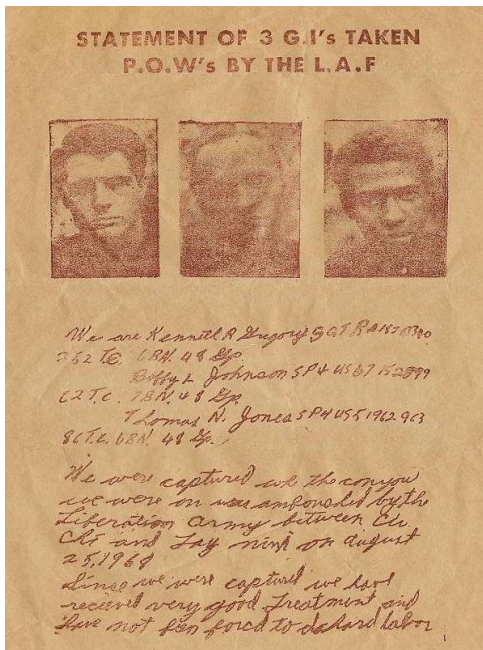 STATEMENT OF 3 G.I's TAKEN
P.O.W's BY THE L.A.F
We are Kenneth R Gregory SGT RA
362 T.C. 6BN. 48 Gp.
Bobby L Johnson SP4 US
62 T.C. 7BN. 48 Gp.
Thomas N. Jones SP4 US
86 T.C. 6BN. 48 Gp.
We were captured the convoy
we were on was ambushed by the
Liberation Army between Cu
Chi and Tay ninh on August
25, 1968
Since we were captured we have
recieved very good treatment and
have not been forced to do hard labor